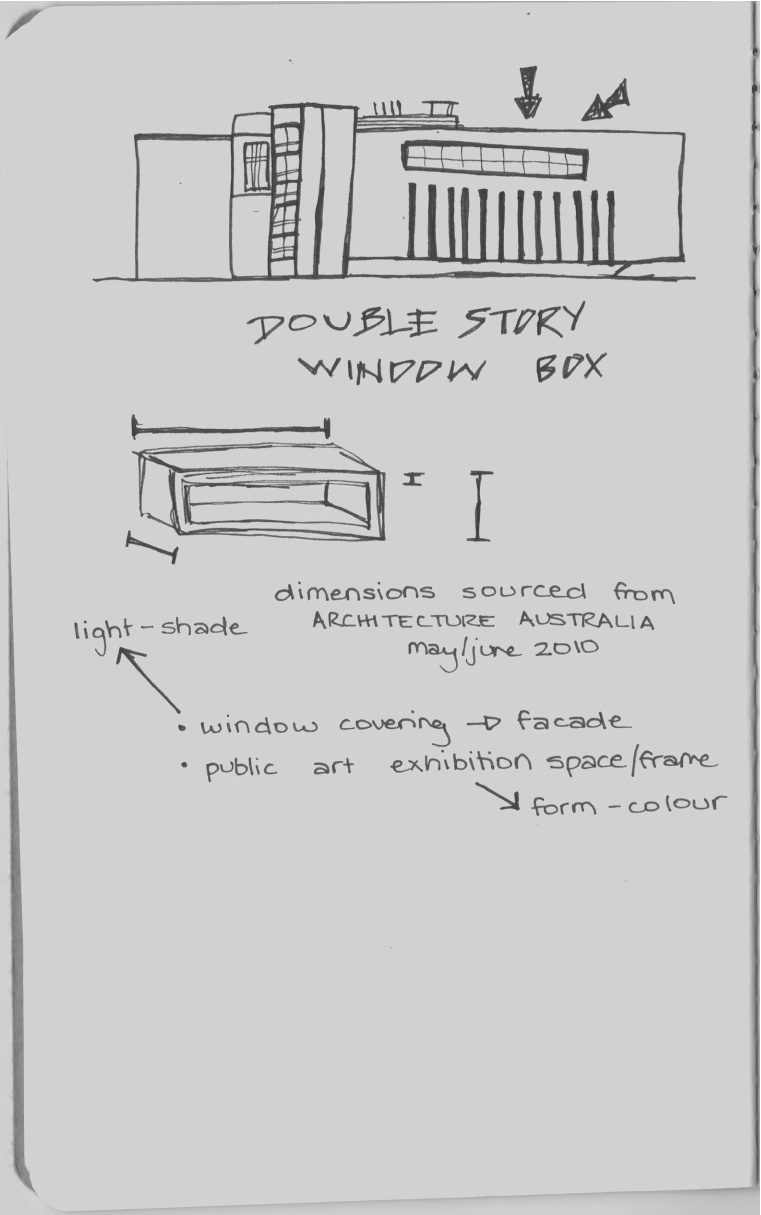 DOUBLE STORY
WINDOW BOX
dimensions sourced from
ARCHITECTURE AUSTRALIA
may/june 2010
light - shade
• window covering → facade
• public art exhibition space/frame
form - colour